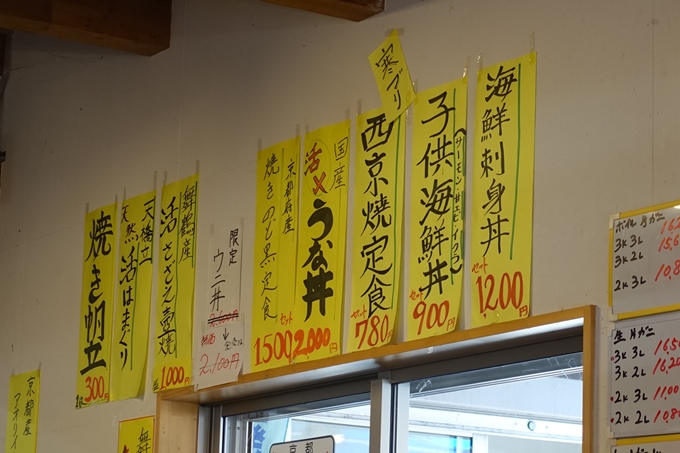 海鮮刺身丼
セット
1,200円
子供海鮮丼
(サーモン 甘エビ イクラ)
セット
900円
寒ブリ
西京焼定食
セット
780円
国産
活×うな丼
2,000円
京都府産
焼きのど黒定食
セット
1500円
限定
ウニ丼
2,100円
舞鶴産
活さざえ壺焼
1,000円
天橋立
天然活はまぐり
焼き帆立
300円
京都産
アオリイ
舞
京都
ボイル 月ガニ
3K 3L
3K 2L
10,8
生 月ガニ
3K 3L 16,50
3K 2L 16,20
2K 3L 11,00
2K 2L 10,80